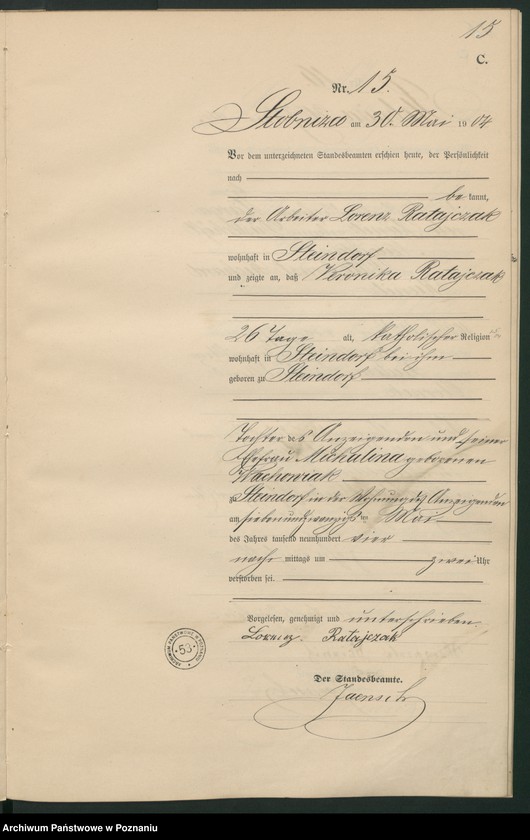 15
C.
Nr. 15.
Stobnica am 30. Mai 1904
Vor dem unterzeichneten Standesbeamten erschien heute, der Persönlichkeit
nach
bekannt,
der Arbeiter Lorenz Ratajczak
wohnhaft in Steindorf
und zeigte an, daß Veronika Ratajczak
26 Tage alt, katholischer Religion
wohnhaft in Steindorf bei ihm
geboren zu Steindorf
Tochter des Anzeigenden und seiner
Ehefrau Michalina geborenen
Wachowiak
zu Steindorf in der Wohnung des Anzeigenden
am siebenundzwanzigsten Mai
des Jahres tausend neunhundert vier
nach mittags um zwei Uhr
verstorben sei.
Vorgelesen, genehmigt und unterschrieben
Lorenz Ratajczak
ARCHIWUM PAŃSTWOWE W POZNANIU
53
Der Standesbeamte.
Jaensch
Archiwum Państwowe w Poznaniu